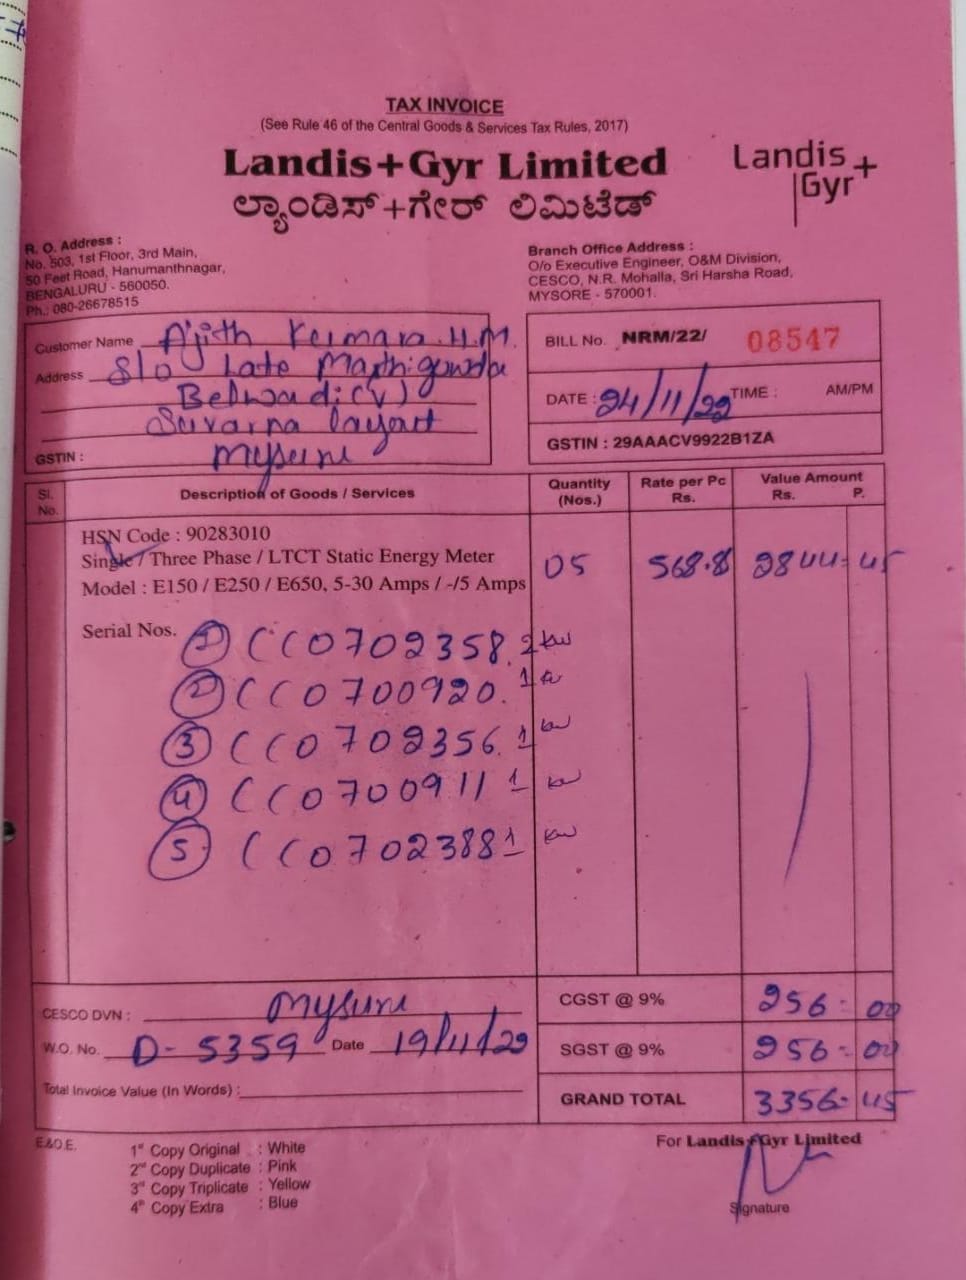 TAX INVOICE
(See Rule 46 of the Central Goods & Services Tax Rules, 2017)
Landis+Gyr Limited
ಲ್ಯಾಂಡಿಸ್+ಗೇರ್ ಲಿಮಿಟೆಡ್
Landis+
Gyr
R. O. Address :
No. 503, 1st Floor, 3rd Main,
50 Feet Road, Hanumanthnagar,
BENGALURU - 560050.
Ph.: 080-26678515
Branch Office Address :
O/o Executive Engineer, O&M Division,
CESCO, N.R. Mohalla, Sri Harsha Road,
MYSORE - 570001.
Customer Name Ajith Kumara. H.M.
Address S/o Late
Belwadi (v)
Suvarna layout
GSTIN : Mysuru
BILL No. NRM/22/ 08547
DATE : 24/11/22 TIME : AM/PM
GSTIN : 29AAACV9922B1ZA
Sl. No. Description of Goods / Services Quantity (Nos.) Rate per Pc Rs. Value Amount Rs. P.
HSN Code : 90283010
Single / Three Phase / LTCT Static Energy Meter
Model : E150 / E250 / E650, 5-30 Amps / -/5 Amps
05 568.8 2844=45
Serial Nos. 1 CC0702358. 2 kw
2 CC0700920. 1 k
3 CC0702356. 1 kw
4 CC0700911 1 kw
5 CC0702388 1 kw
CESCO DVN : Mysuru
W.O. No. D-5359 Date 19/11/22
Total Invoice Value (In Words) :
CGST @ 9% 256= 00
SGST @ 9% 256= 00
GRAND TOTAL 3356= 45
E&O.E.
1st Copy Original : White
2nd Copy Duplicate : Pink
3rd Copy Triplicate : Yellow
4th Copy Extra : Blue
For Landis+Gyr Limited
Signature